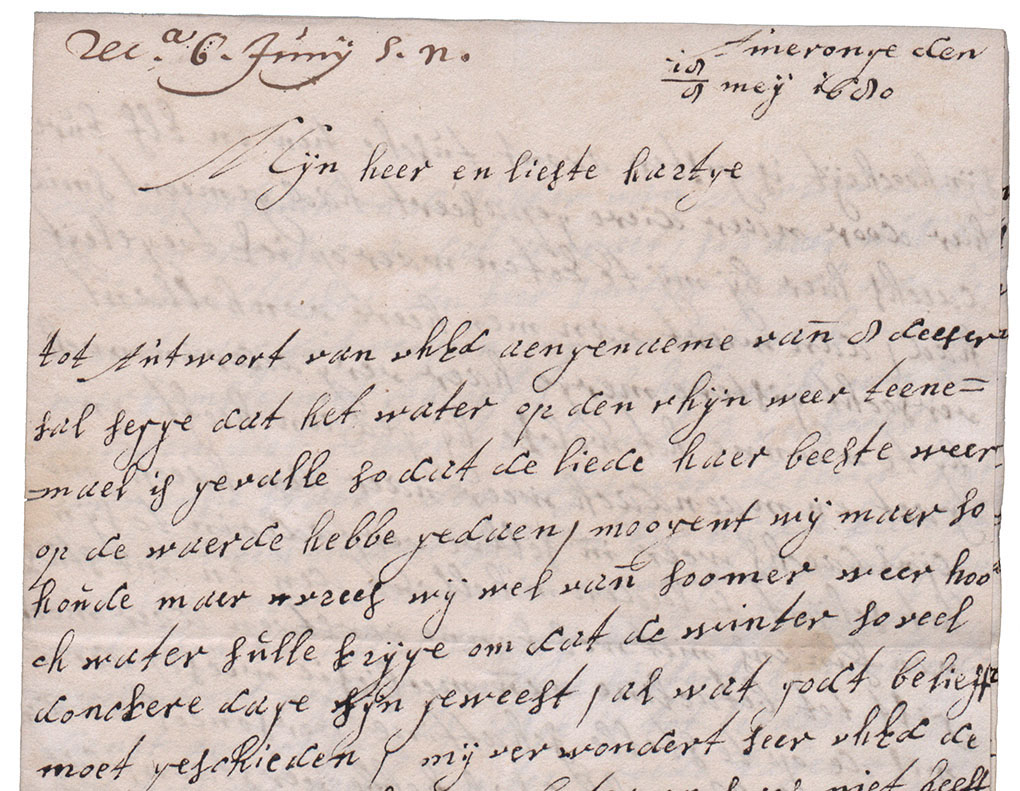 Rec.a 6. Junij s. n.
Ameronge den
18/8 meij 1680
Mijn heer en liefste hartge
tot Antwoort van uhEd aengenaeme vann 8 deeser
sal segge dat het water op den rhijn weer teene=
=mael is gevalle so dat de liede haer beeste weer
op de waerde hebbe gedaen, moogent wij maer so
houde maer vrees wij wel vann soomer weer hoo
ch water sulle krijge om dat de winter so veel
donckere dage sijn geweest, al wat godt belieft
moet geschieden, mij verwondert seer uhEd de
niet heeft